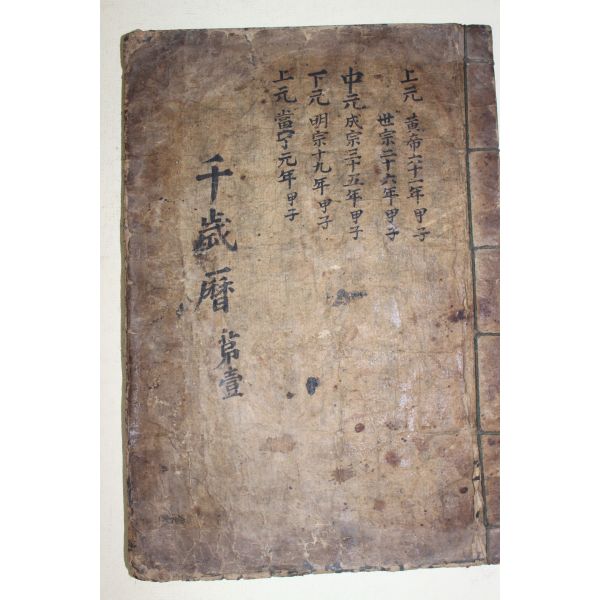 上元 黄帝六十一年甲子
世宗二十六年甲子
中元 成宗三十五年甲子
下元 明宗十九年甲子
上元 當宁元年甲子
千歲曆 苐壹